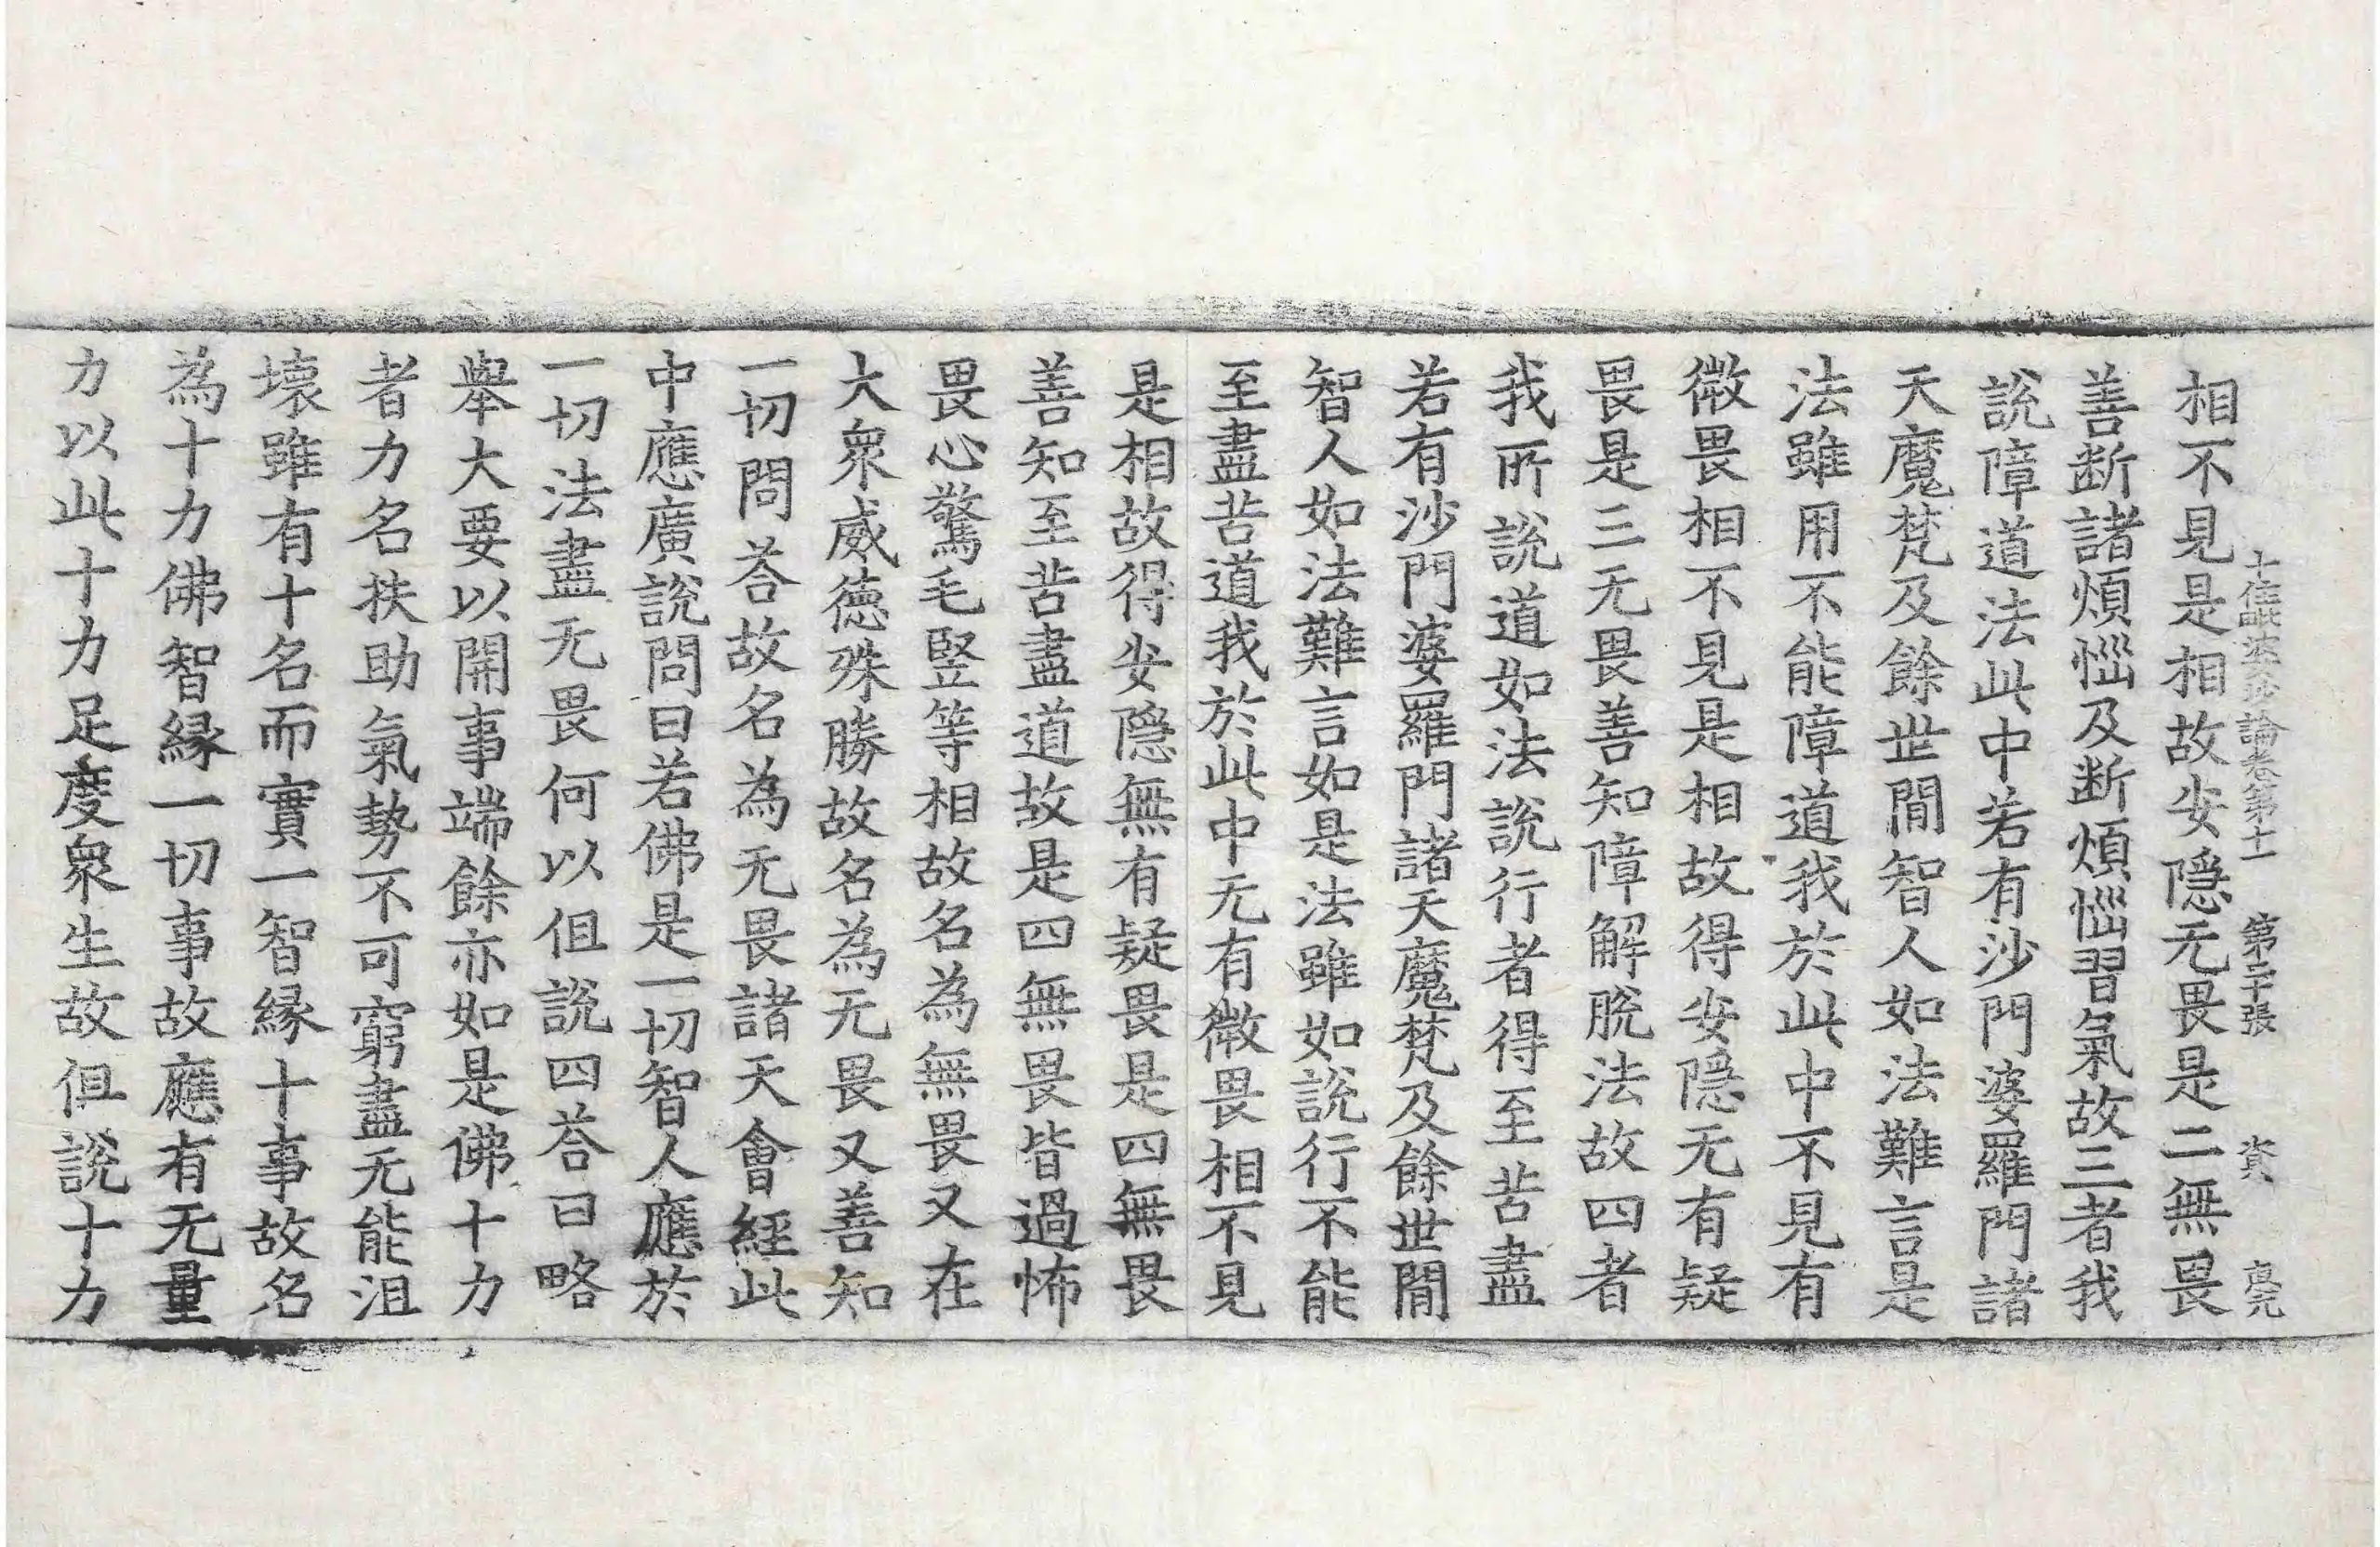 十住毗婆沙論卷第十一 第二十張 資 克
相不見是相故安隱无畏是二無畏
善断諸煩惱及断煩惱習氣故三者我
說障道法此中若有沙門婆羅門諸
天魔梵及餘世間智人如法難言是
法雖用不能障道我於此中不見有
微畏相不見是相故得安隱无有疑
畏是三无畏善知障解脫法故四者
我所說道如法說行者得至苦盡
若有沙門婆羅門諸天魔梵及餘世間
智人如法難言如是法雖如說行不能
至盡苦道我於此中无有微畏相不見
是相故得安隱無有疑畏是四無畏
善知至苦盡道故是四無畏皆過怖
畏心驚毛竪等相故名為無畏又在
大衆威德殊勝故名為无畏又善知
一切問荅故名為无畏諸天會經此
中應廣說問曰若佛是一切智人應於
一切法盡无畏何以但說四荅曰略
舉大要以開事端餘亦如是佛十力
者力名扶助氣勢不可窮盡无能沮
壞雖有十名而實一智緣十事故名
為十力佛智緣一切事故應有无量
力以此十力足度衆生故但說十力